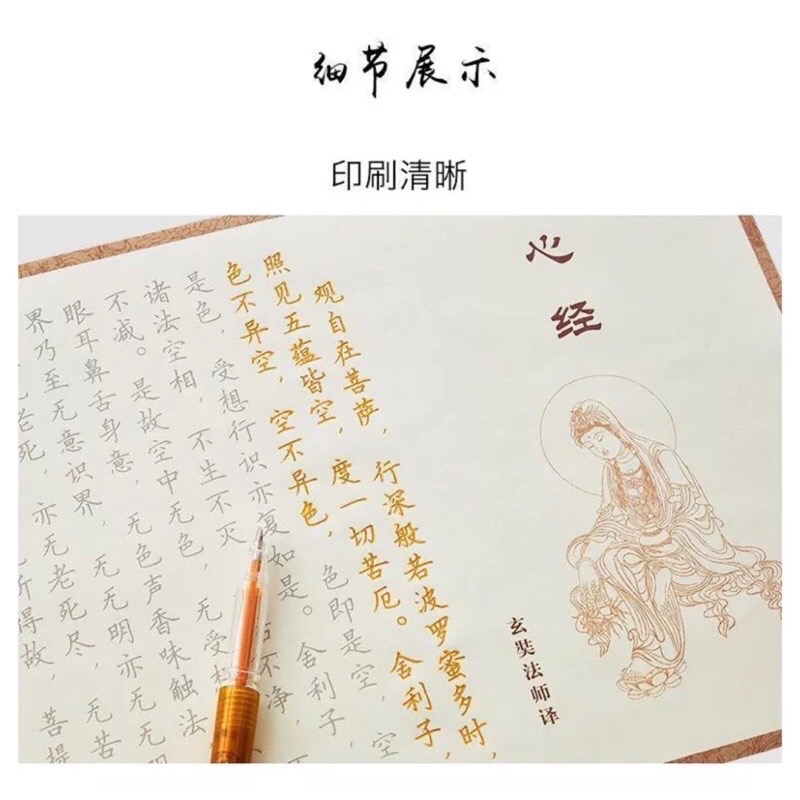 细节展示
印刷清晰
心经
玄奘法师译
观自在菩萨，行深般若波罗蜜多时，
照见五蕴皆空，度一切苦厄。舍利子，
色不异空，空不异色，色即是空，空
是色，受想行识亦复如是。舍利子，
诸法空相，不生不灭 不净，
不减。是故空中无色，无受
眼耳鼻舌身意，无色声香味触法
界乃至无意识界，无无明亦无无
老死，亦无老死尽，无苦
所得故，菩提